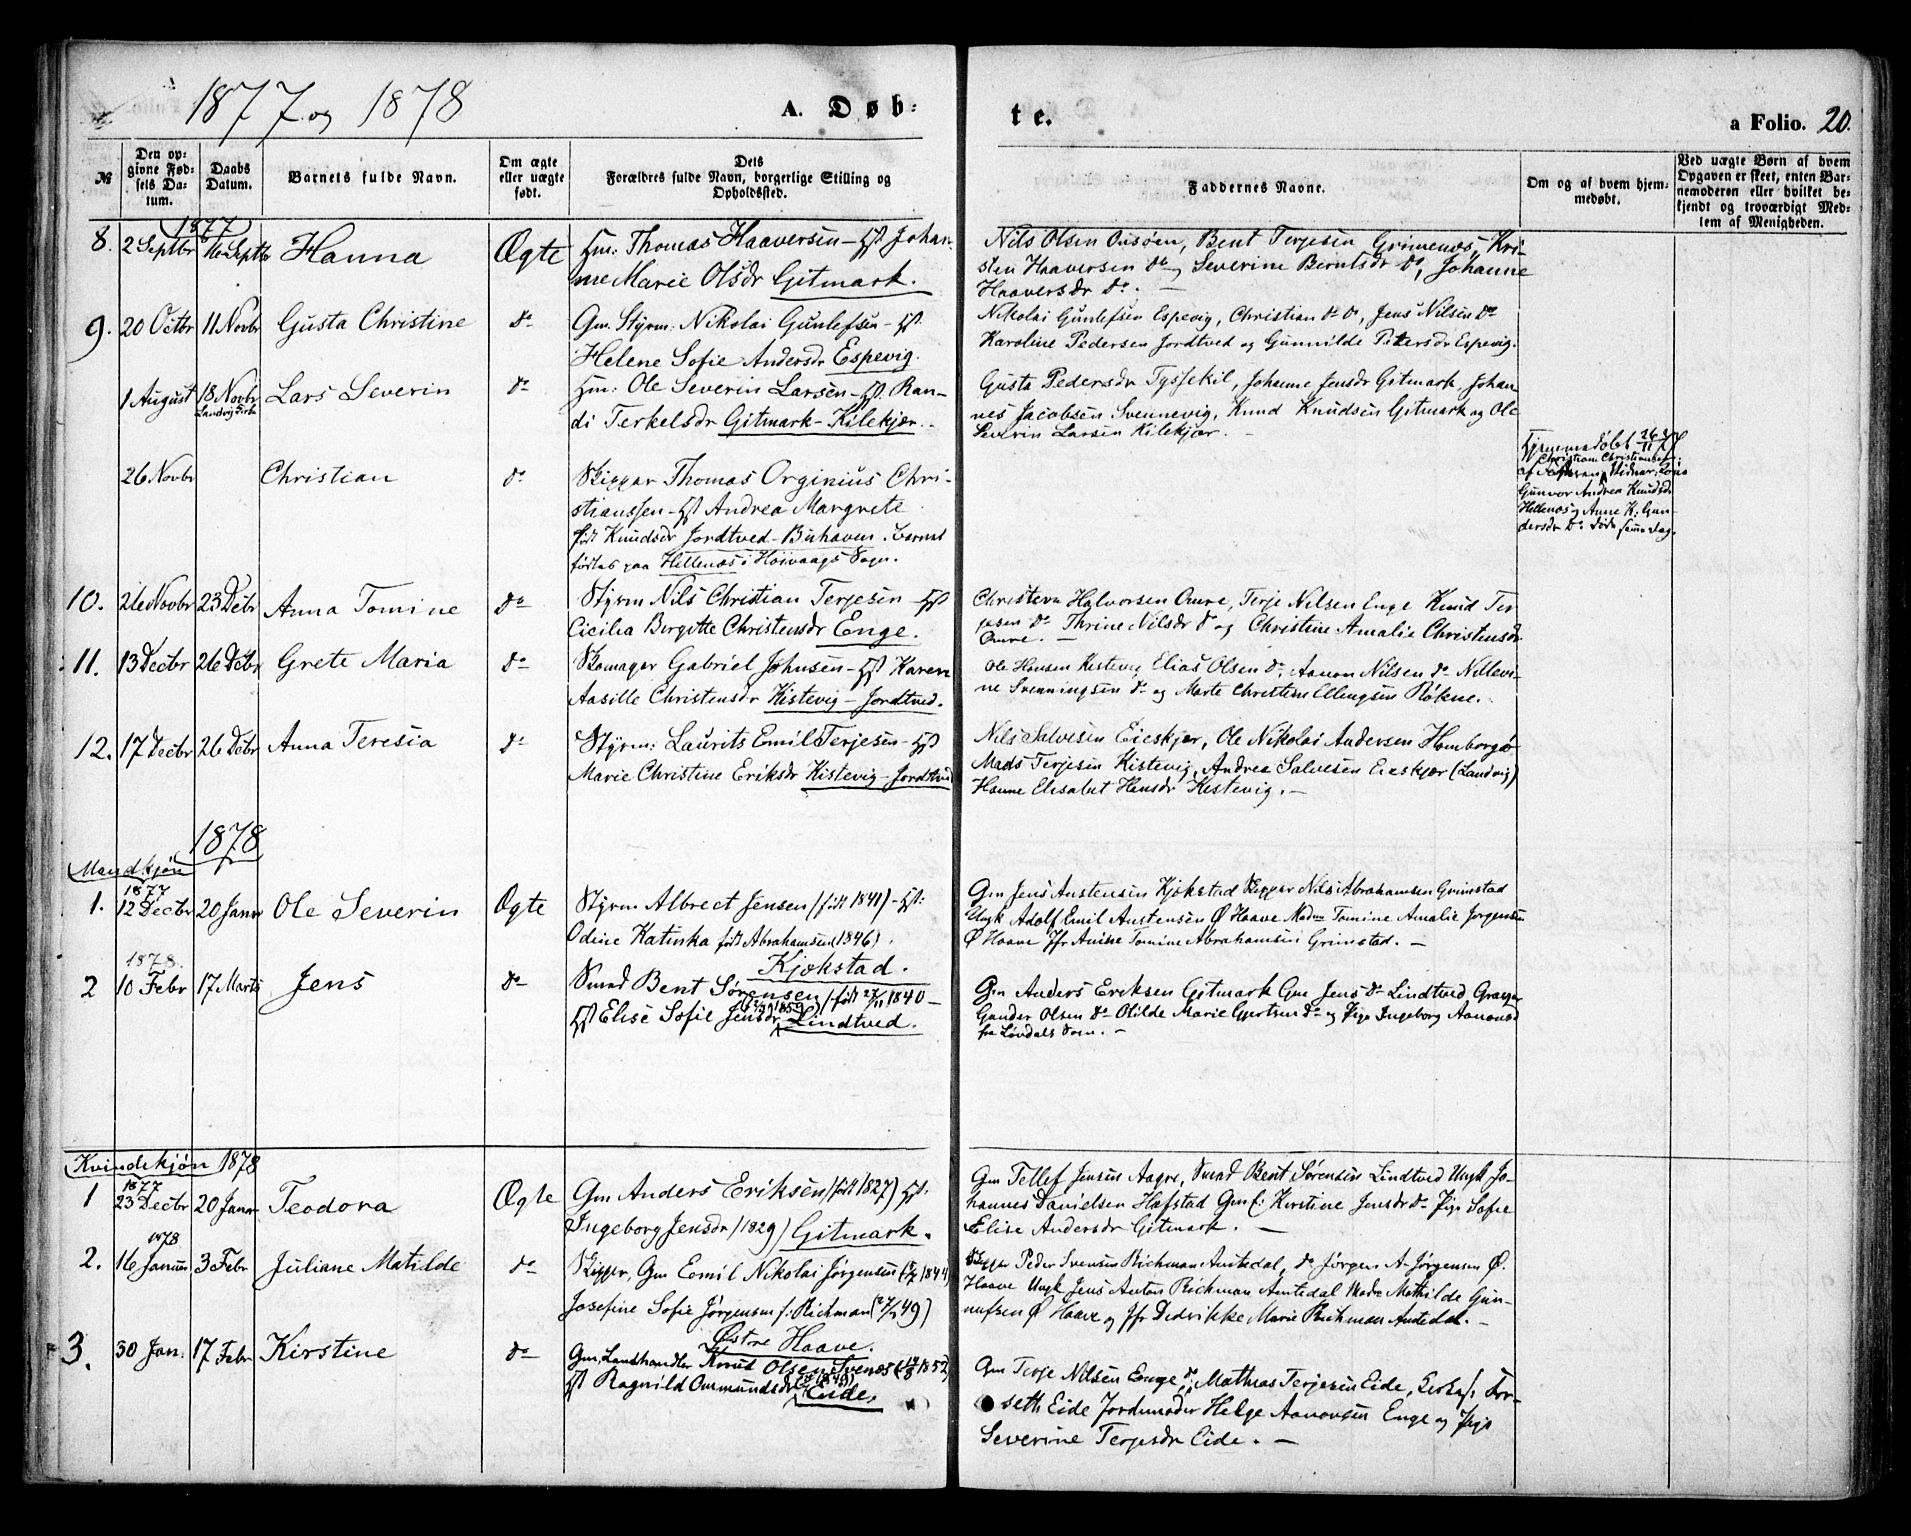 1877 og 1878
A. Døb-
te.
a Folio. 20.
№
Den op-
givne Fød-
sels Da-
tum.
Daabs
Datum.
Barnets fulde Navn.
Om ægte
eller uægte
født.
Dets
Forældres fulde Navn, borgerlige Stilling og
Opholdssted.
Faddernes Navne.
Om og af hvem hjem-
medøbt.
Ved uægte Børn af hvem
Opgaven er skeet, enten Bar-
nemoderen eller hvilket be-
kjendt og troværdigt Med-
lem af Menigheden.
1877
8. 2 Septbr 16 Septbr Hanna Ægte Gm: Thomas Haaversen – Hst Johan-
ne Marie Olsdr Gitmark.
Nils Olsen Ousøen, Bent Terjesen Grimenæs, Kri-
sten Haaversen do og Severine Berntsdr do, Johanne
Haaversdr do. –
9. 20 Octbr 11 Novbr Gusta Christine do Gm. Styrm: Nikolai Gunlefsen – Hst.
Helene Sofie Andersdr Espevig.
Nikolai Gunlefsen Espevig, Christian do do, Jens Nilsen do
Karoline Pedersen Jordtved og Gunnilde Petersdr Espevig.
1 August 18 Novbr Lars Severin do Hm: Ole Severin Larsen – Hst. Ran-
Landvig Kirke
di Terkelsdr Gitmark – Kilekjær.
Gusta Pedersdr Tyssekil, Johanne Jensdr Gitmark, Johan-
nes Jacobsen Svennevig, Knud Knudsen Gitmark og Ole
Severin Larsen Kilekjær. –
26 Novbr Christian do Skipper Thomas Orginius Chri-
stianssen – Hst Andrea Margrete
født Knudsdr Jordtved – Buhaven. Barnet
fødtes paa Hellenæs i Høivaags Sogn.
Hjemmedøbt 26/11 77
Christiane Christiansen
Gunvor Andrea Knudsdr
Hellenæs og Anne K. Gun-
dersdr do. Døde samme dag.
10. 26 Novbr 23 Debr Anna Tomine do Styrm Nils Christian Terjesen – Hst
Cicilia Birgitte Christensdr Enge.
Christen Halvorsen Omre, Terje Nilsen Enge Knud Ter-
jesen do Thrine Nilsdr do og Christine Amalie Christensdr
Omre. –
11. 13 Decbr 26 Debr Grete Maria do Skomager Gabriel Johnsen – Hst Karen
Aasille Christensdr Kistevig – Jordtved.
Ole Hansen Kistevig, Elias Olsen do. Aanon Nilsen do Nillevi-
ne Svenningsen do og Marte Christine Ellingsen Røkne. –
12. 17 Decbr 26 Debr Anna Teresia do Styrm: Laurits Emil Terjesen – Hst
Marie Christine Eriksdr Kistevig – Jordtved
Nils Salvesen Eieskjær, Ole Nikolai Andersen Homborgø
Mads Terjesen Kistevig, Andrea Salvesen Eieskjær (Landvig)
Hanne Elisabet Hansdr Kistevig. –
1878
Mandkjøn
1877
1. 12 Decbr 20 Januar Ole Severin Ægte Styrm Albrect Jensen (født 1841) – Hst:
Odine Katinka født Abrahamsen (1846).
Kjøkstad.
Gm Jens Austensen Kjøkstad Skipper Nils Abrahamsen Grimstad
Ungk Adolf Emil Austensen Ø Haave Madm Tomine Amalie Jørgensen
Ø Haave Jfr Anine Tomine Abrahamsen Grimstad. –
1878.
2 10 Febr 17 Marts Jens do Smed Bent Sørensen (født 27/11 1840 –
Hst Elise Sofie Jensdr Lindtved.
Gm Anders Eriksen Gitmark Gm Jens do Lindtved Graver
Gunder Olsen do Olilde Marie Gjertsen do og Pige Ingeborg Aanonsd
fra Løvdals Sogn. –
Kvindekjøn 1878
1877
1 23 Decbr 20 Januar Teodora Ægte Gm Anders Eriksen (født 1827) Hst.
Ingeborg Jensdr (1829) Gitmark.
Gm Tellef Jensen Aagre, Smed Bent Sørensen Lindtved Ungk Jo-
hannes Danielsen Hafstad Gmf: Kirstine Jensdr do Pige Sofie
Elise Andersdr Gitmark. –
1878
2. 16 Januar 3 Febr Juliane Matilde do Skipper, Gm Emil Nikolai Jørgensen
Josefine Sofie Jørgensen f: Richman
Østre Haave.
Skipper Peder Svensen Richman Amtedal, do Jørgen A. Jørgensen Ø.
Haave Ungk Jens Anton Richman Amtedal Madm Mathilde Gun-
nufsen Ø Haave og Jfr Didrikke Marie Richman Amtedal. –
3. 30 Jan. 17 Febr Kirstine do Gm, Landhandler Knud Olsen Svenæs
Hst Ragnild Ommundsdr Eide.
Gm Terje Nilsen Enge do Mathias Terjesen Eide, Tor-
seth Eide Jordmoder Helge Aanonsen Enge og Pige
Severine Terjesdr Eide. –